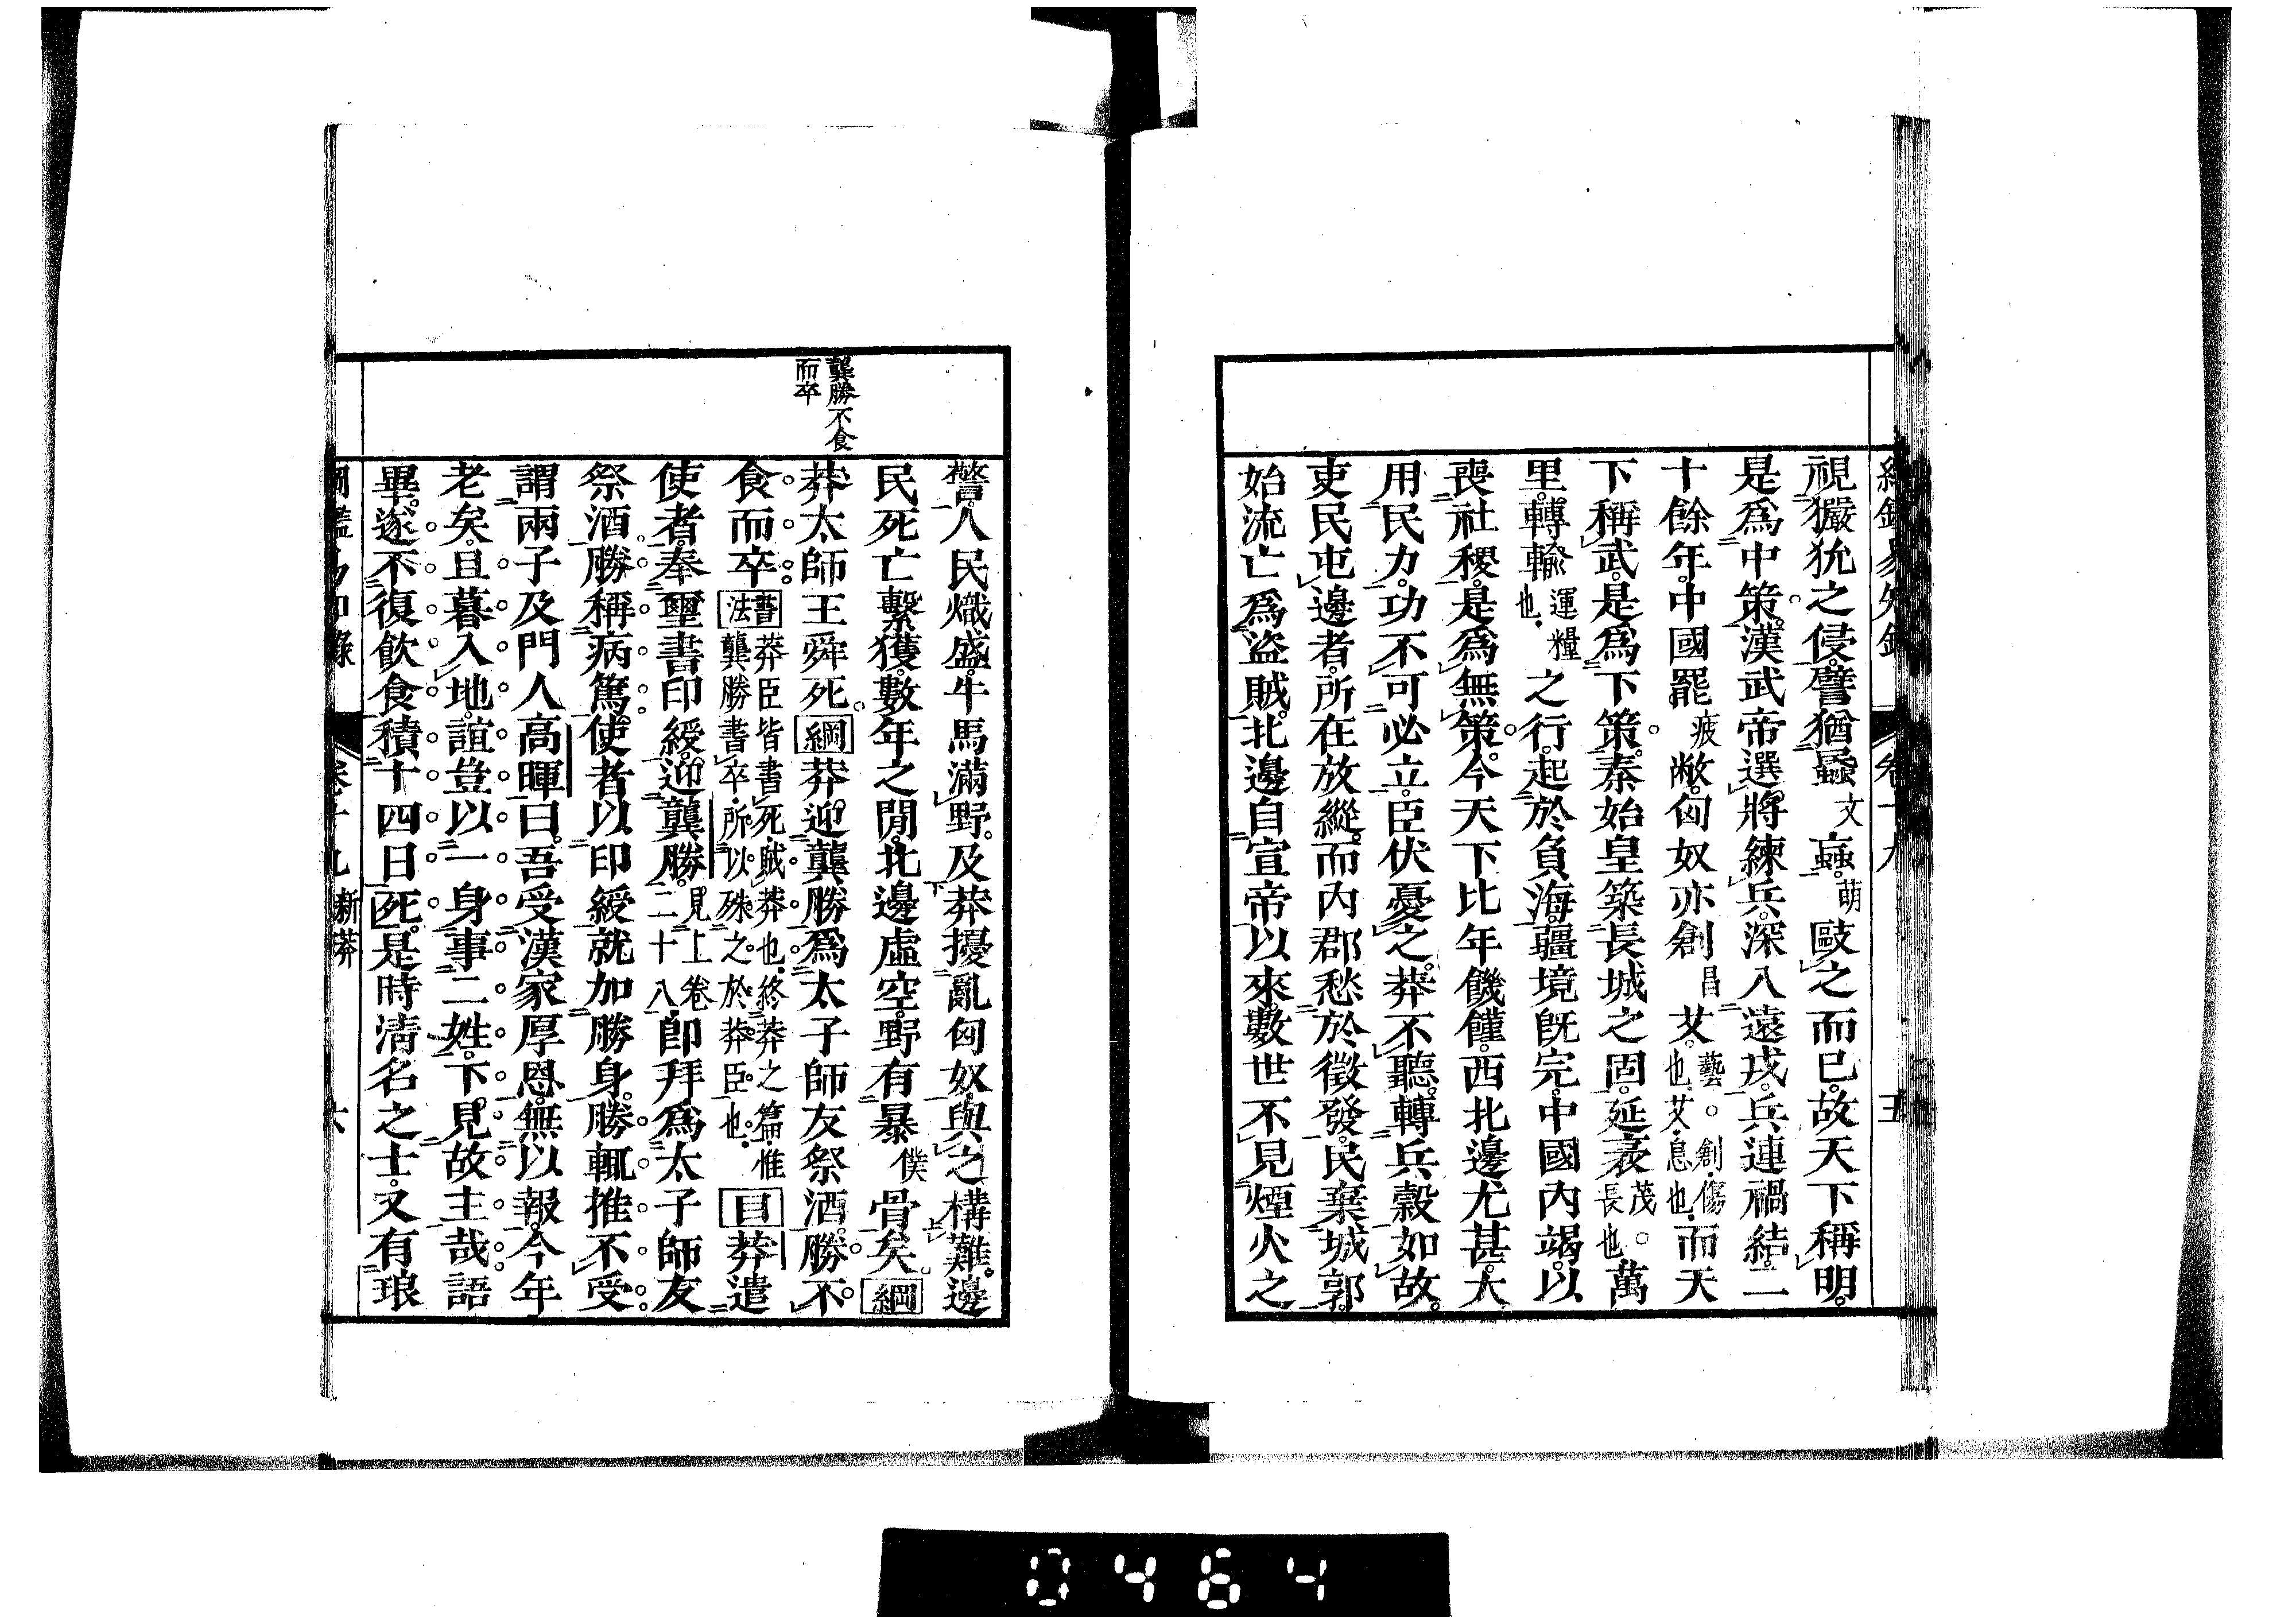 視玁狁之侵。譬猶蟁文蝱。萌敺之而已。故天下稱明。
是爲中策。漢武帝選將練兵。深入遠戍。兵連禍結。二
十餘年。中國罷疲敝。匈奴亦創昌艾。藝。創。傷也。艾。息也。而天
下稱武。是爲下策。秦始皇築長城之固。延袤茂。長也。萬
里。轉輸運糧也。之行。起於負海。疆境旣完。中國內竭。以
喪社稷。是爲無策。今天下比年饑饉。西北邊尤甚。大
用民力。功不可必立。臣伏憂之。莽不聽。轉兵穀如故。
吏民屯邊者。所在放縱。而內郡愁於徵發。民棄城郭。
始流亡爲盜賊。北邊自宣帝以來。數世不見煙火之
龔勝不食
而卒
警。人民熾盛。牛馬滿野。及莽擾亂匈奴。與之構難。邊
民死亡繫獲。數年之閒。北邊虛空。野有暴僕骨矣。綱
莽太師王舜死。綱莽迎龔勝爲太子師友祭酒。勝不
食而卒。書法莽臣皆書死。賊莽也。終莽之篇。惟龔勝書卒。所以殊之於莽臣也。目莽遣
使者。奉璽書印綬。迎龔勝。見上卷二十八卽拜爲太子師友
祭酒。勝稱病篤。使者以印綬就加勝身。勝輒推不受
謂兩子及門人高暉曰。吾受漢家厚恩。無以報。今年
老矣。且暮入地。誼豈以一身事二姓。下見故主哉。語
畢。遂不復飲食。積十四日死。是時淸名之士。又有琅
新莽
0464